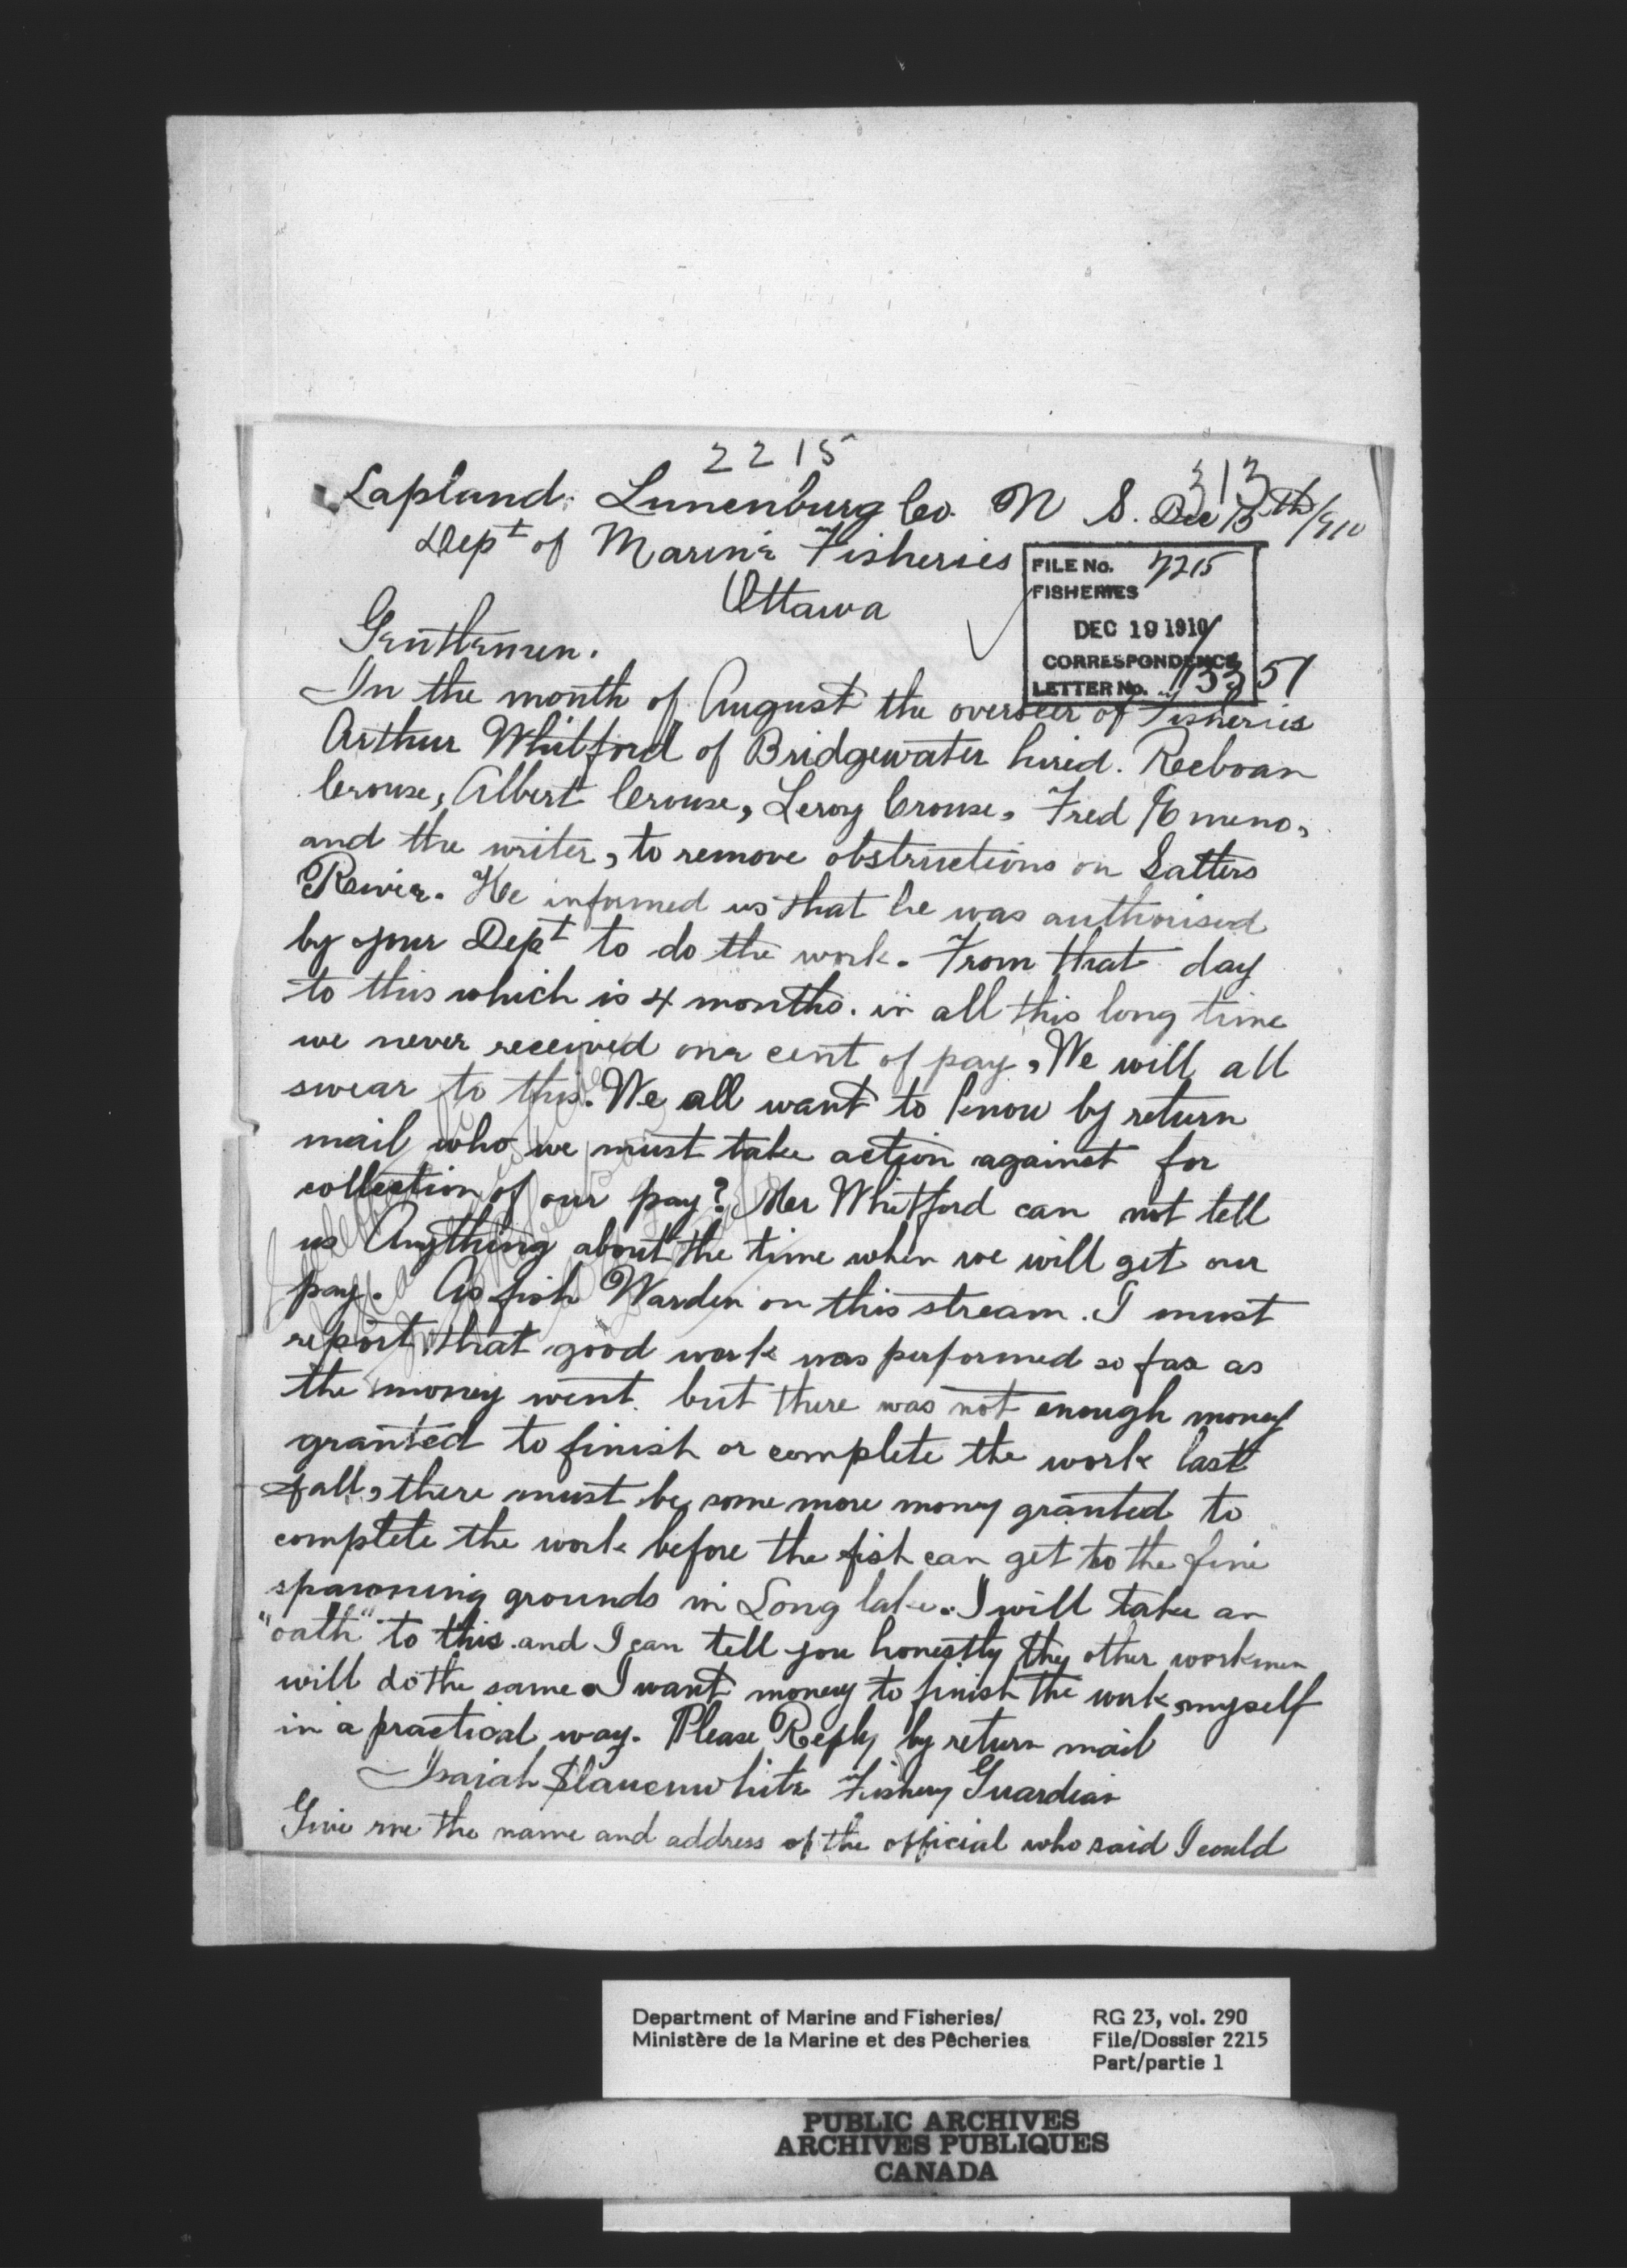 2215
313
Lapland Lunenburg Co. N S. Dec 15th/910
Dept of Marine Fisheries
Ottawa
FILE No. 2215
FISHERIES
DEC 19 1910
CORRESPONDENCE
LETTER No. 51
Gentlemen.
In the month of August the overseer of Fisheries
Arthur Whitford of Bridgewater hired. Reeboan
Crouse, Albert Crouse, Leroy Crouse, Fred Emeno,
and the writer, to remove obstructions on Salters
River. He informed us that he was authorised
by your Dept to do the work. From that day
to this which is 4 months. in all this long time
we never received one cent of pay, We will all
swear to this. We all want to know by return
mail who we must take action against for
collection of our pay? Mer Whitford can not tell
us Anything about the time when we will get our
pay. As fish Warden on this stream. I must
report that good work was performed so far as
the money went. but there was not enough money
granted to finish or complete the work last
fall, there must be some more money granted to
complete the work before the fish can get to the fine
spawning grounds in Long lake. I will take an
"oath" to this. and I can tell you honestly they other workmen
will do the same. I want money to finish the work myself
in a practical way. Please Reply by return mail
Isaiah Slauenwhite Fishery Guardian
Give me the name and address of the official who said I could
Department of Marine and Fisheries/
Ministère de la Marine et des Pêcheries
RG 23, vol. 290
File/Dossier 2215
Part/partie 1
PUBLIC ARCHIVES
ARCHIVES PUBLIQUES
CANADA